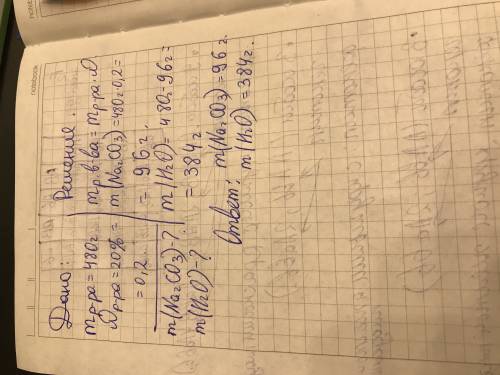 notebook
Дано:
mр-ра = 480г
ωр-ра = 20% =
= 0,2
m(Na2CO3)-?
m(H2O)-?
Решение.
mр.в-ва = mр-ра·ω
m(Na2CO3) = 480г·0,2 =
= 96г.
m(H2O) = 480-96г =
= 384г
Ответ: m(Na2CO3) = 96г.
m(H2O) = 384г.